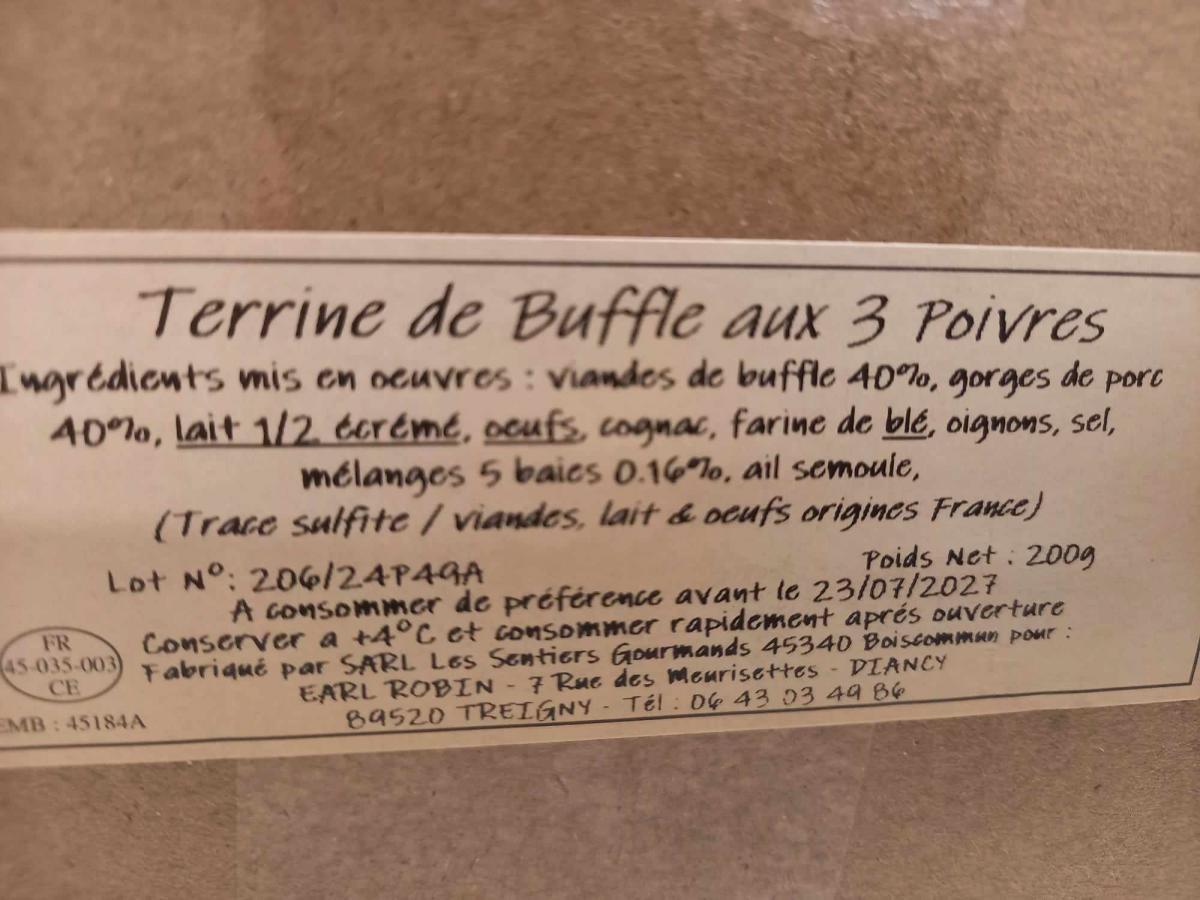 Terrine de Buffle aux 3 Poivres
Ingrédients mis en oeuvres : viandes de buffle 40%, gorges de porc
40%, lait 1/2 écrémé, oeufs, cognac, farine de blé, oignons, sel,
mélanges 5 baies 0.16%, ail semoule,
(Trace sulfite / viandes, lait & oeufs origines France)
Poids Net : 200g
Lot N°: 206/24P49A
A consommer de préférence avant le 23/07/2027
Conserver a +4°C et consommer rapidement aprés ouverture
Fabriqué par SARL Les Sentiers Gourmands 45340 Boiscommun pour :
EARL ROBIN - 7 Rue des Meurisettes - DIANCY
89520 TREIGNY - Tél : 06 43 03 49 86
FR
45-035-003
CE
EMB : 45184A